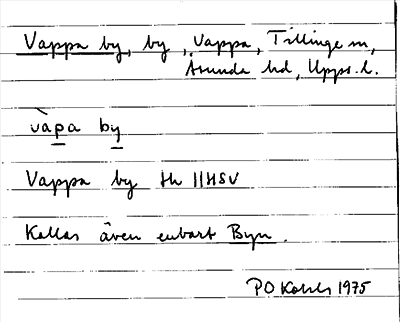 Vappa by, by, Vappa, Tillinge sn,
Åsunda hd, Upps. l.
vàpa by
Vappa by th 11H5V
Kallas även enbart Byn.
PO 1975